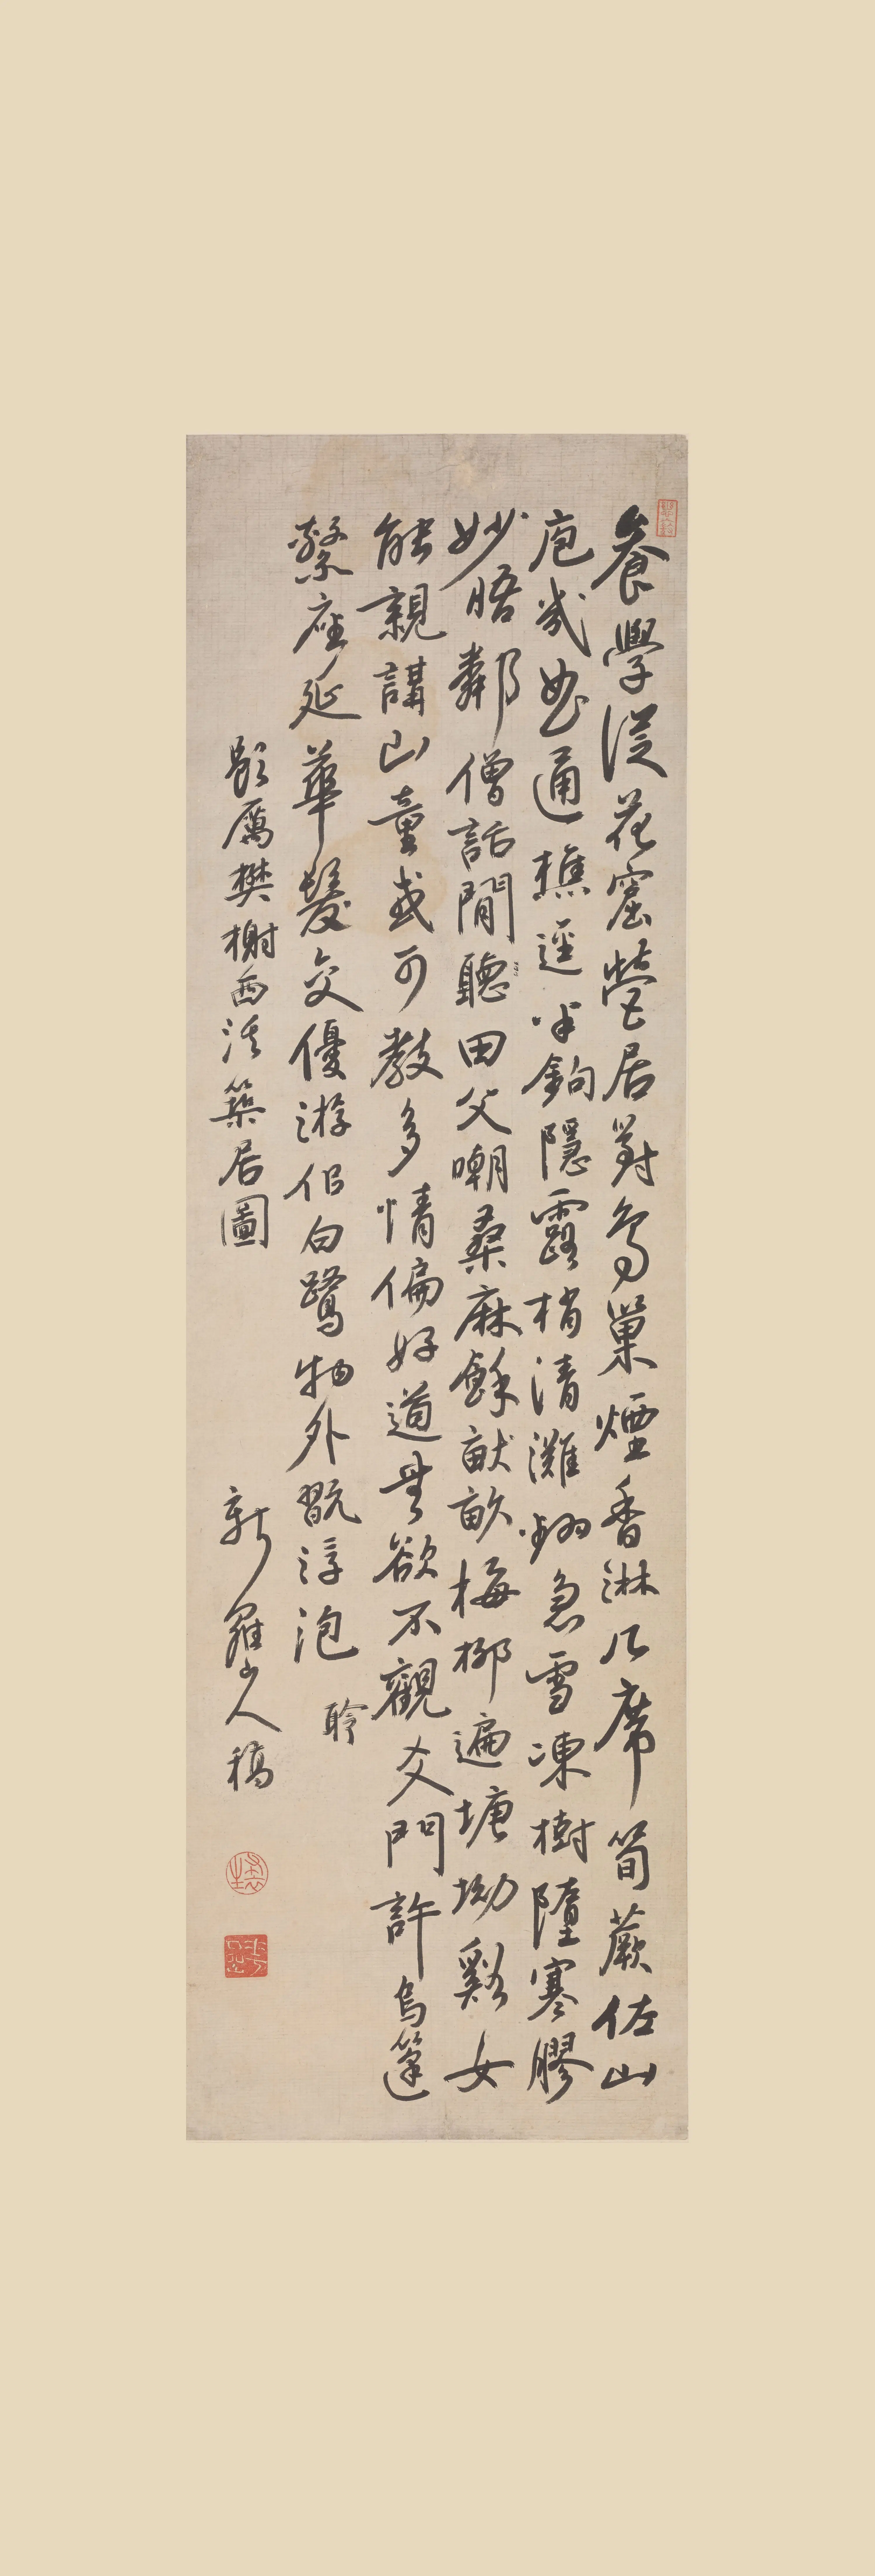 養學從花窟營居對鳥巢煙香淋几席筍蕨佐山
庖幾曲通樵逕半鉤隱露梢清灘翻急雪凍樹墮寒膠
妙晤鄰僧話閒聽田父嘲桑麻餘畎畝梅柳遍塘坳谿女
能親講山童或可教多情偏好道無欲不觀爻門許烏篷
繫座延華髮交優游侶白鷺物外翫浮泡 聆
題厲樊榭西溪築居圖 新羅山人稿